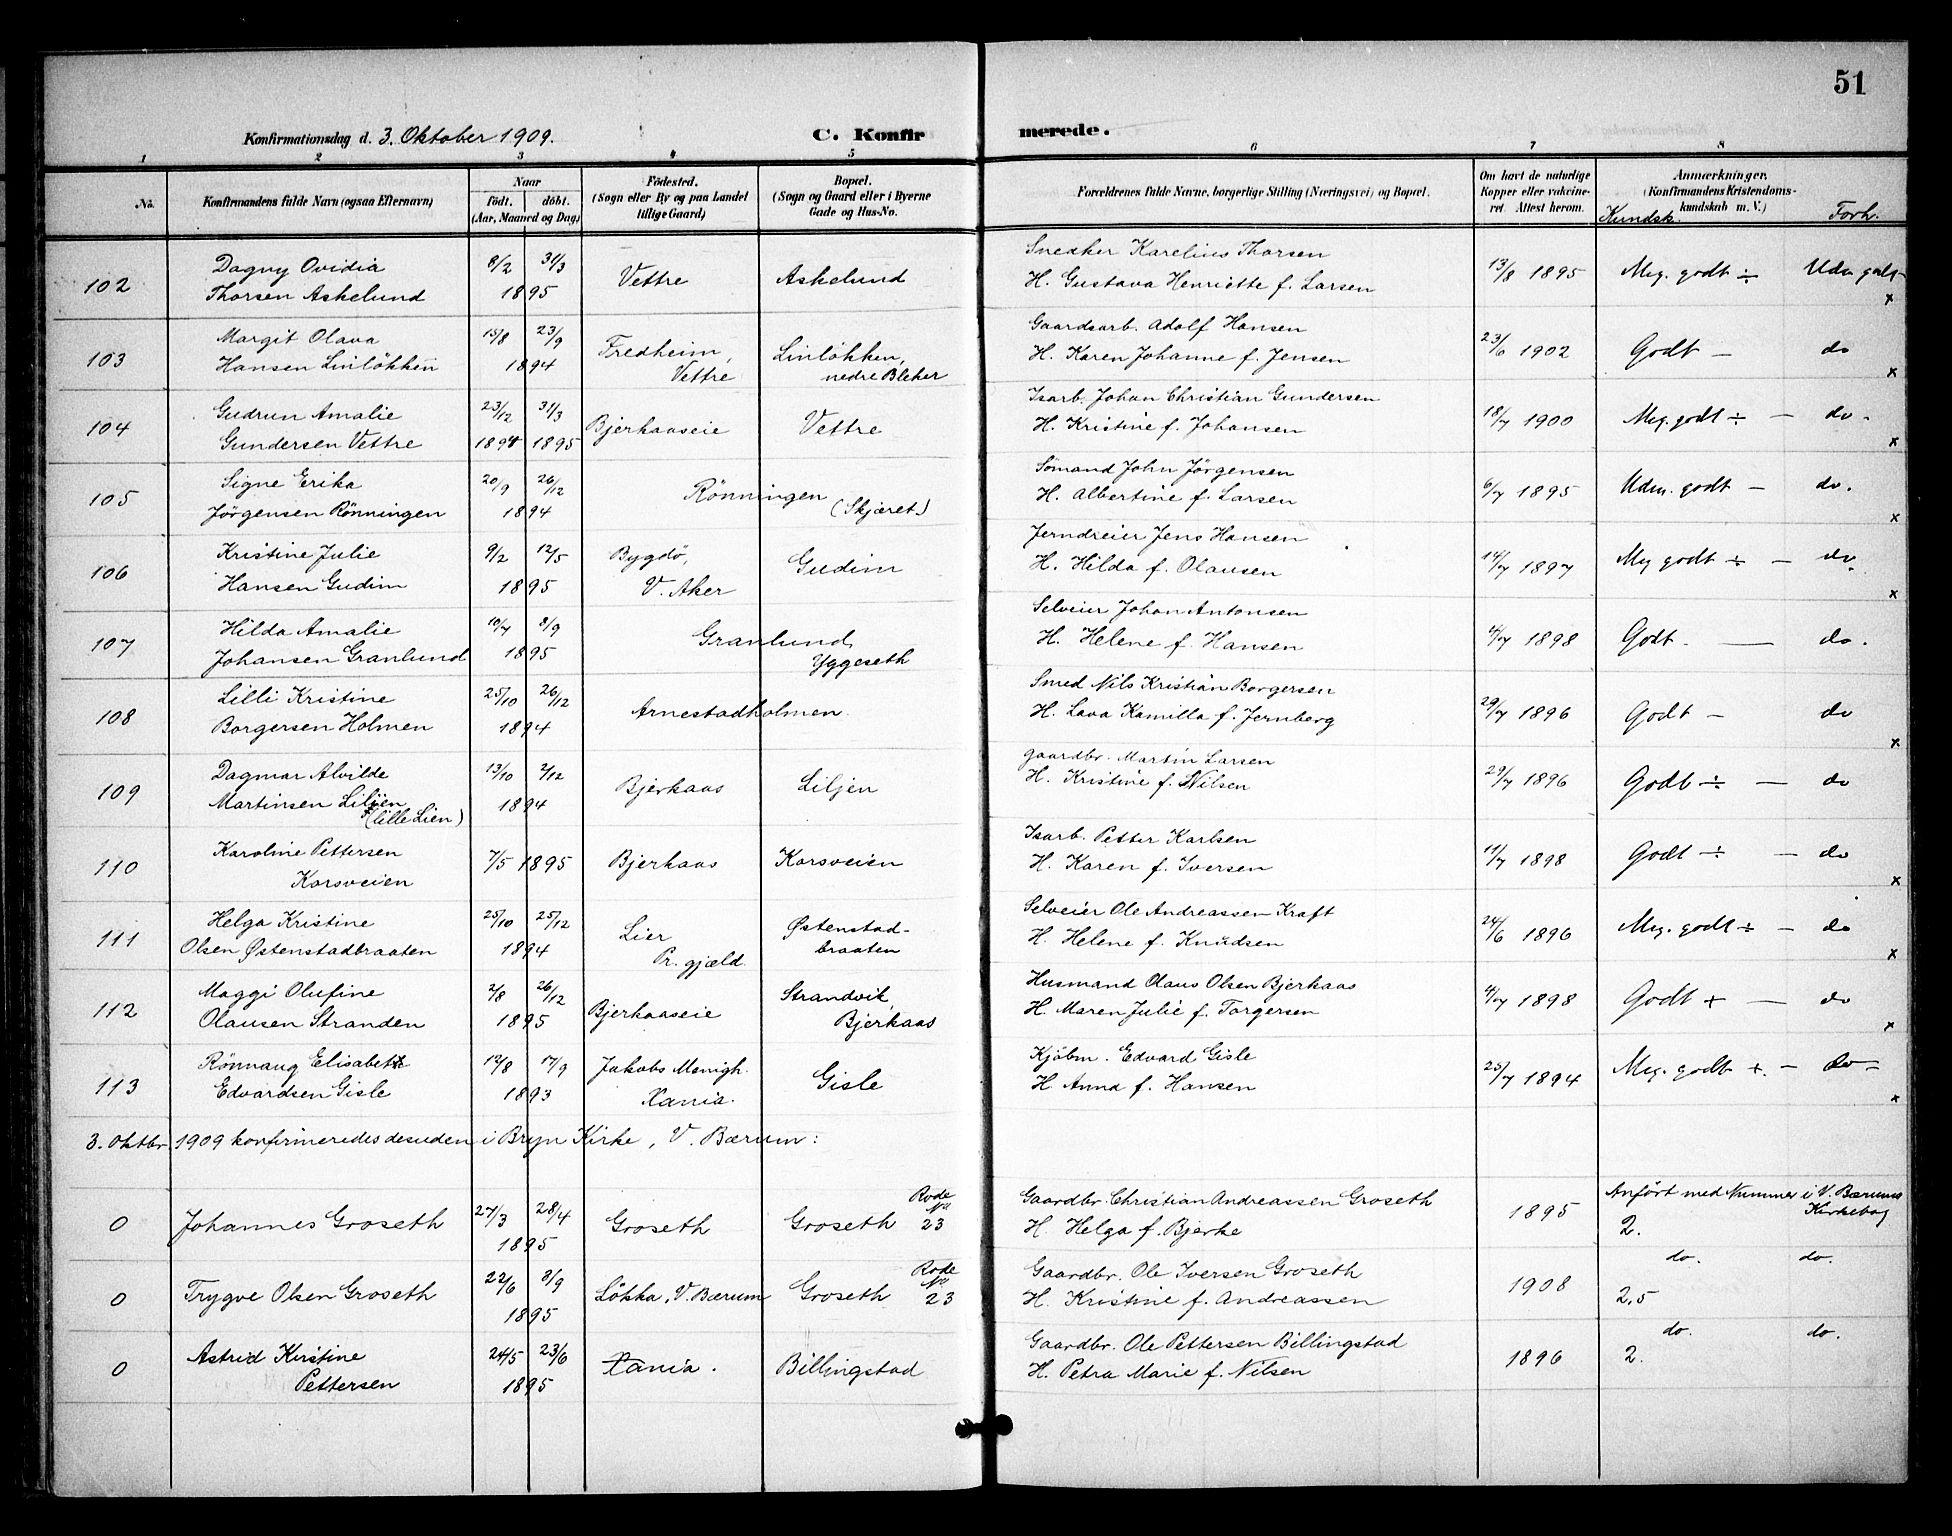 51
Konfirmationsdag d. 3. Oktober 1909. C. Konfirmerede.
1 2 3 4 5 6 7 8
No. Konfirmandens fulde Navn (ogsaa Efternavn)
Naar født. døbt. (Aar, Maaned og Dag)
Fødested. (Sogn eller By og paa Landet tillige Gaard)
Bopæl. (Sogn og Gaard eller i Byerne Gade og Hus-No.
Forældrenes fulde Navne, borgerlige Stilling (Næringsvei) og Bopæl.
Om havt de naturlige Kopper eller vakcineret. Attest herom.
Anmærkninger. (Konfirmandens Kristendomskundskab m. V.)
Kundsk. Forh.
Dagny Ovidia 8/2 31/3 Snedker Karelius Thorsen
102 Thorsen Askelund 1895 Vettre Askelund H. Gustava Henriette f. Larsen 13/8 1895 Meg. godt ÷ Udm godt x
Margit Olava 15/8 23/9 Gaardsarb. Adolf Hansen
103 Hansen Linløkken 1894 Fredheim, Vettre Linløkken, nedre Bleker H. Karen Johanne f. Jensen 23/6 1902 Godt — do x
Gudrun Amalie 23/12 31/3 Isarb. Johan Christian Gundersen
104 Gundersen Vettre 1894 1895 Bjerkaaseie Vettre H. Kristine f. Johansen 18/7 1900 Meg. godt ÷ — do - x
Signe Erika 20/9 26/12 Sømand John Jørgensen
105 Jørgensen Rønningen 1894 Rønningen (Skjæret) H. Albertine f. Larsen 6/7 1895 Udm. godt — do. x
Kristine Julie 9/2 12/5 Bygdø, Jerndreier Jens Hansen
106 Hansen Gudim 1895 V. Aker Gudim H. Hilda f. Olausen 14/7 1897 Meg godt ÷ — do. x
Hilda Amalie 10/7 8/9 Selveier Johan Antonsen
107 Johansen Granlund 1895 Granlund, Yggeseth H. Helene f. Hansen 4/7 1898 Godt. — do.
Lilli Kristine 25/10 26/12 Smed Nils Kristian Borgersen
108 Borgersen Holmen 1894 Arnestadholmen. H. Lava Kamilla f. Jernberg 29/7 1896 Godt — do x
Dagmar Alvilde 13/10 2/12 Gaardbr. Martin Larsen
109 Martinsen Liljen (lille Lien) 1894 Bjerkaas Liljen H. Kristine f. Nilsen 29/7 1896 Godt ÷ — do
Karoline Pettersen Isarb. Petter Karlsen
110 Korsveien 7/5 1895 Bjerkaas Korsveien H. Karen f. Iversen 11/7 1898 Godt ÷ — do x
Helga Kristine 25/10 25/12 Østenstad- Selveier Ole Andreassen Kraft
111 Olsen Østenstadbraaten 1894 Lier Pr. gjæld. braaten H. Helene f. Knudsen 24/6 1896 Meg. godt ÷ — do x
Maggi Olufine 2/8 26/12 Strandvik, Husmand Olaus Olsen Bjerkaas
112 Olausen Stranden 1895 Bjerkaaseie Bjerkaas H. Maren Julie f. Torgersen 4/7 1898 Godt + — do x
Rønnaug Elisabeth 12/8 17/9 Jakobs Menigh. Kjøbm. Edvard Gisle
113 Edvardsen Gisle 1893 Xania. Gisle H. Anna f. Hansen 25/7 1894 Meg. godt +. — do — x
3. Oktbr. 1909 konfirmeredes desuden i Bryn Kirke, V. Bærum:
27/3 28/4 Rode No Gaardbr. Christian Andreassen Groseth Anført med Nummer i V. Bærums Kirkebog
0 Johannes Groseth 1895 Groseth Groseth 23 H. Helga f. Bjerke 1895 2.
22/6 8/9 Rode No Gaardbr. Ole Iversen Groseth do. do.
0 Trygve Olsen Groseth 1895 Løkka, V. Bærum Groseth 23 H. Kristine f. Andreassen 1908 2,5
Astrid Kristine 24/5 23/6 Gaardbr. Ole Pettersen Billingstad do. do.
0 Pettersen 1895 Xania. Billingstad H. Petra Marie f. Nilsen 1896 2.